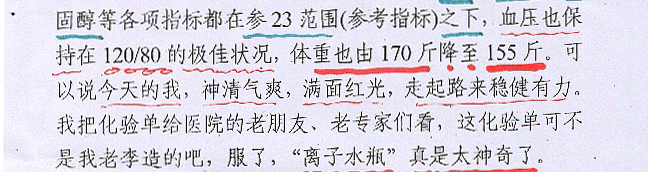 固醇等各项指标都在参 23 范围(参考指标)之下，血压也保
持在 120/80 的极佳状况，体重也由 170 斤降至 155 斤。可
以说今天的我，神清气爽，满面红光，走起路来稳健有力。
我把化验单给医院的老朋友、老专家们看，这化验单可不
是我老李造的吧，服了，“离子水瓶”真是太神奇了。